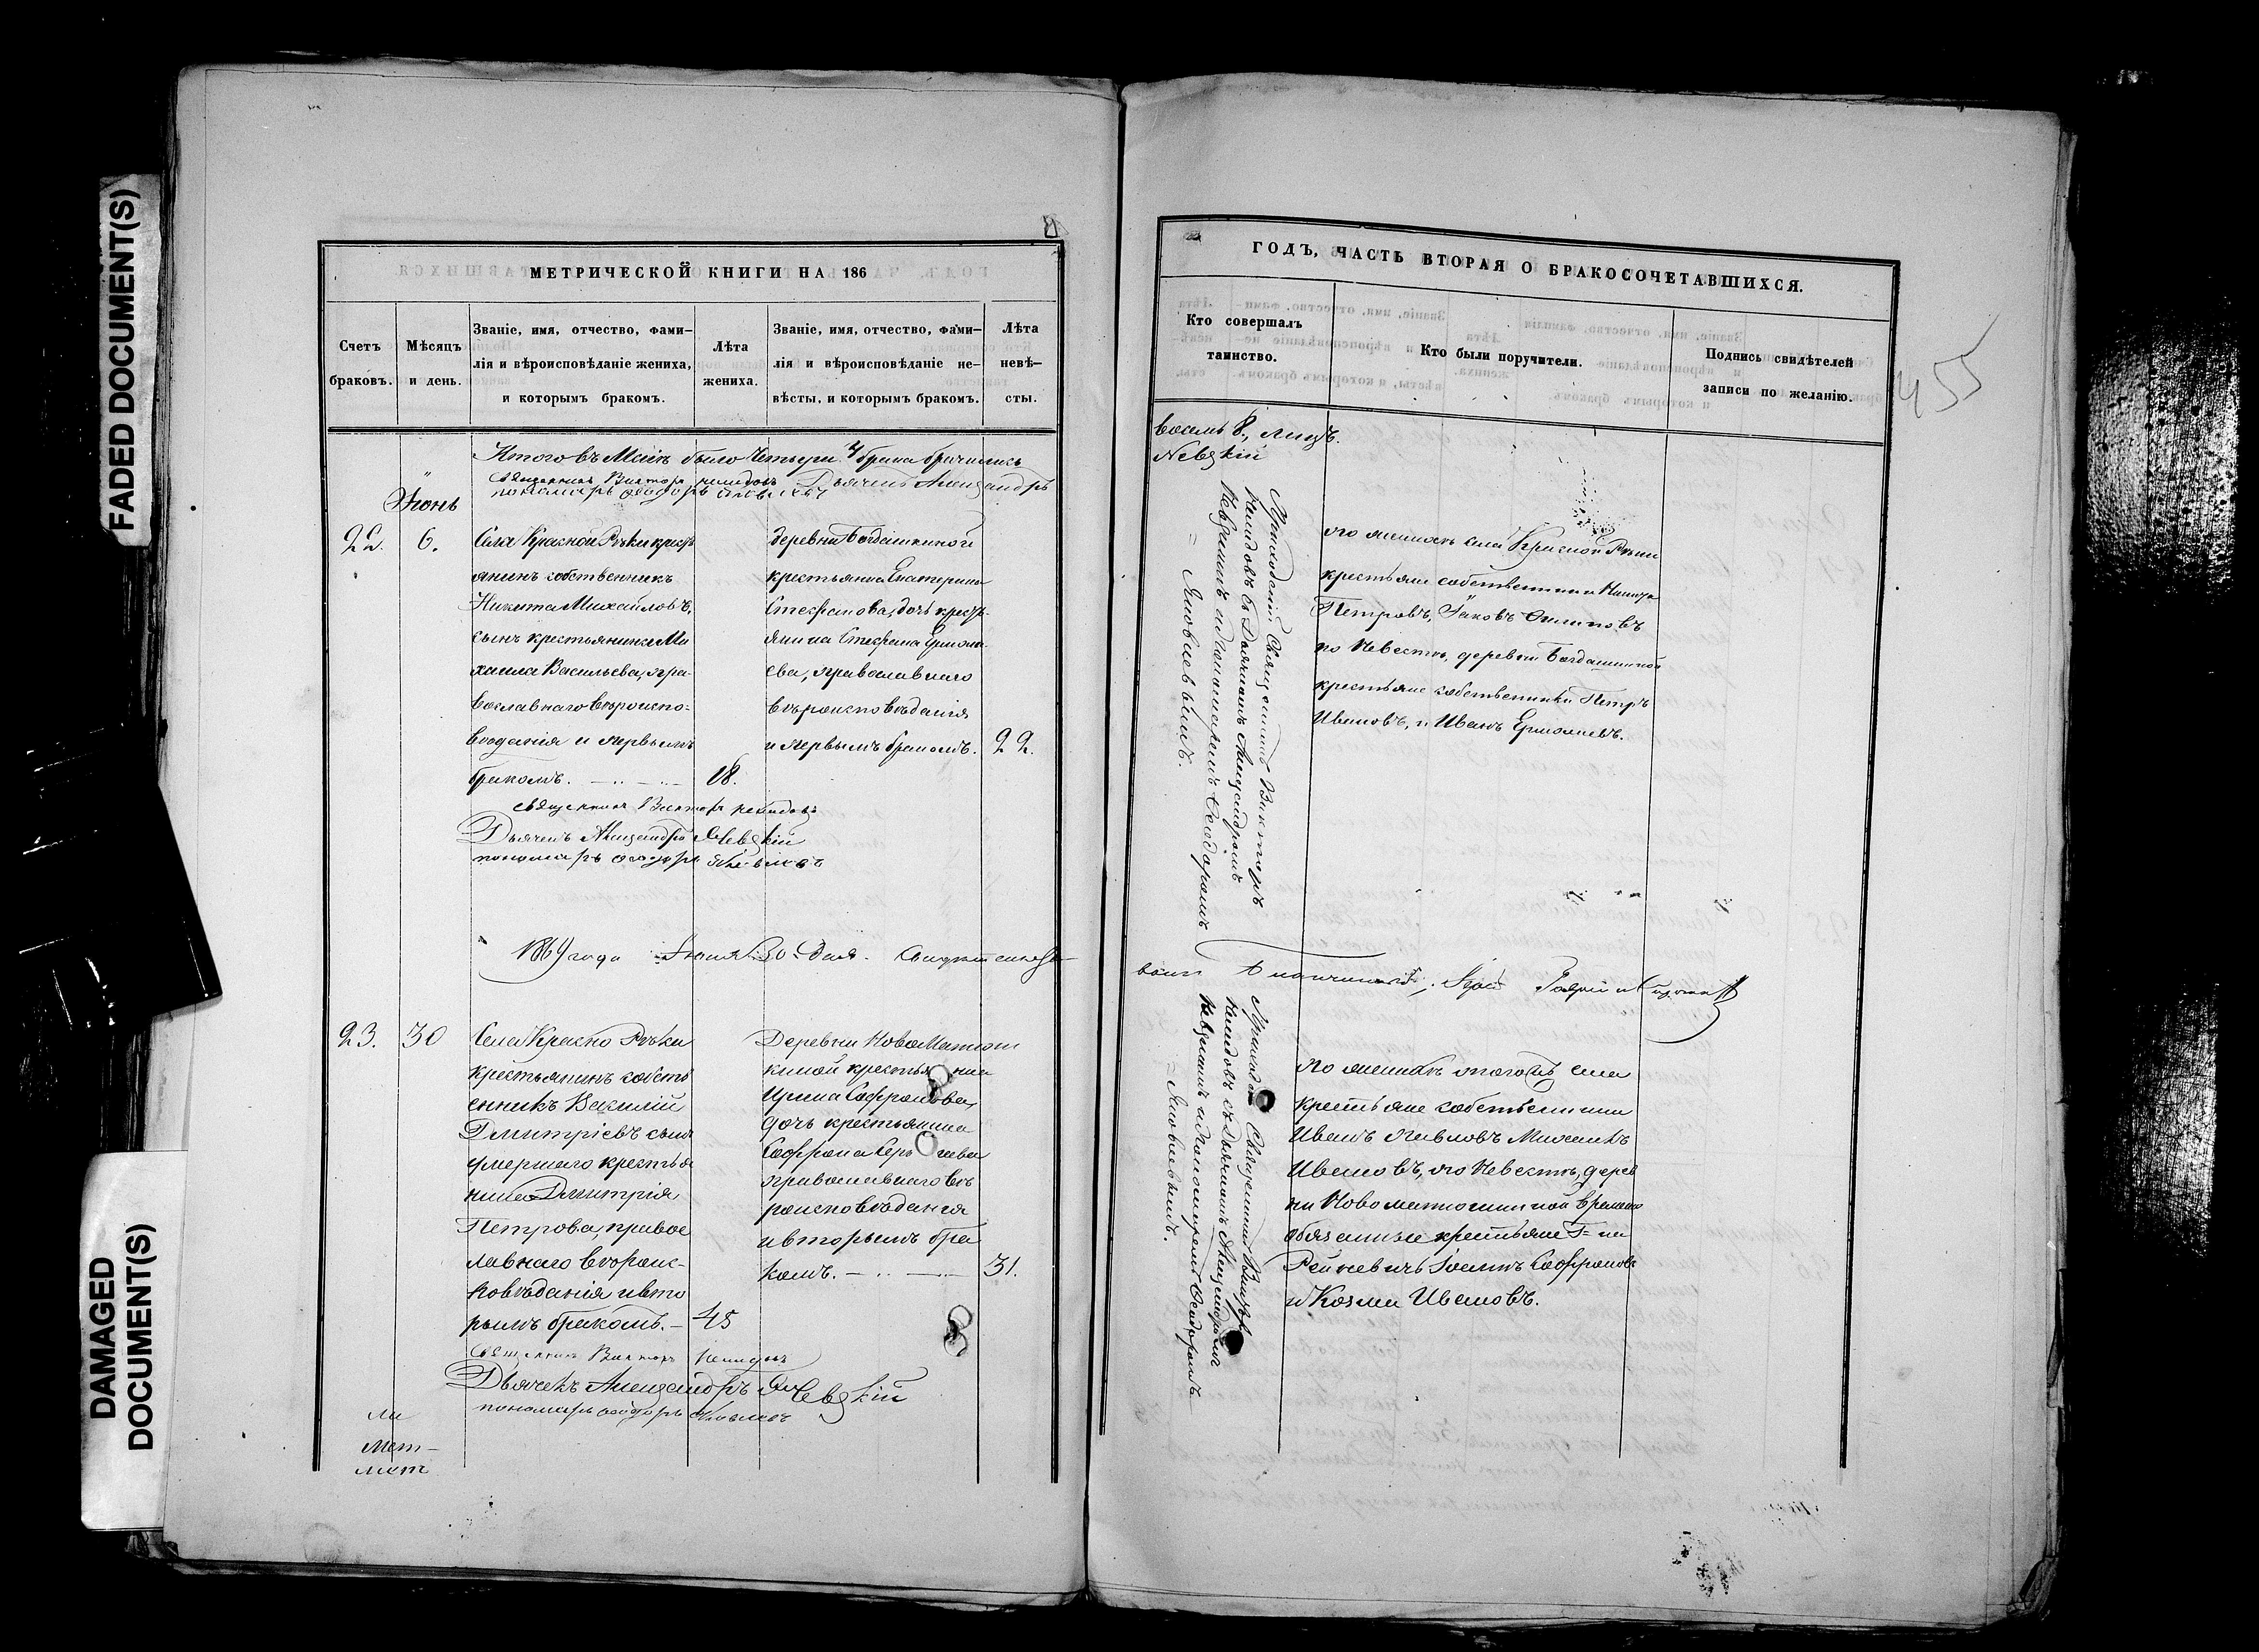 FADED DOCUMENT(S)
DAMAGED
DOCUMENT(S)
МЕТРИЧЕСКОЙ КНИГИ НА 186
Счетъ
браковъ.
Мѣсяцъ
и день.
Званіе, имя, отчество, фами-
лія и вѣроисповѣданіе жениха,
и которымъ бракомъ.
Лѣта
жениха.
Званіе, имя, отчество, фами-
лія и вѣроисповѣданіе не-
вѣсты, и которымъ бракомъ.
Лѣта
невѣ-
сты.
Итого въ Маіѣ было четыри 4 брака
Священникъ Викторъ Дьячекъ Александръ
пономарь Ѳеодоръ
Іюнь
22. 6.
Села Красной Рѣки кресть
янинъ собственникъ
Никита Михайловъ,
сынъ крестьянина Ми
хаила Васильева, пра-
вославнаго вѣроиспо-
вѣданія и первымъ
бракомъ. 18.
деревни Богдашкиной
крестьянка Екатерина
Стефанова, дочь кресть
янина Стефана Ермола
ева, православнаго
вѣроисповѣданія
и первымъ бракомъ. 22.
Священникъ Викторъ
Дьячекъ Александръ Невзкій
пономарь Ѳеодоръ
1869 года Іюня 30 дня.
23. 30
Села Красно Рѣки
крестьянинъ собств
енникъ Василій
Дмитріевъ сынъ
умершаго крестья
нина Дмитрія
Петрова, правос
лавнаго вѣроис-
повѣданія и вто
рымъ бракомъ. 45
Деревни Новоматюш
киной крестьянка
Ирина Софронова,
дочь крестьянина
Софрона Сергѣева
православнаго вѣ
роисповѣданія
и вторымъ бра
комъ. 31.
Священникъ Викторъ
Дьячекъ Александръ Невзкій
пономарь Ѳеодоръ
ГОДЪ, ЧАСТЬ ВТОРАЯ О БРАКОСОЧЕТАВШИХСЯ.
455
Кто совершалъ
таинство.
Кто были поручители.
Подпись свидѣтелей
записи по желанію.
восемь 8, лицъ.
Невзкій
Приходскій Священникъ Викторъ
съ Дьячкомъ Александромъ
Невзкимъ и Пономаремъ Ѳеодоромъ
Яковлевымъ.
по женихѣ села Красной Рѣки
крестьяне собственники
Петровъ, Іаковъ Филиповъ
по Невестѣ, деревни Богдашкиной
крестьяне собственники Петръ
Ивановъ, и Иванъ Ермолаевъ.
Священникъ Викторъ
съ Дьячкомъ Александромъ
Невзкимъ и Пономаремъ Ѳеодоромъ
Яковлевымъ.
по женихѣ того жъ села
крестьяне собственники
Иванъ Павловъ Михаилъ
Ивановъ, по Невестѣ, дерев
ни Новоматюшкиной временно
обязанные крестьяне Г-на
Софроновъ
и Козма Ивановъ.